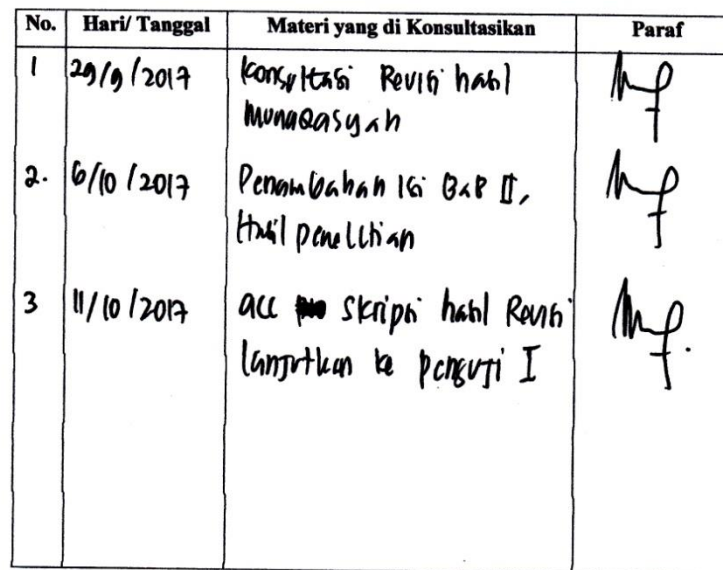 No. Hari/ Tanggal Materi yang di Konsultasikan Paraf
1 29/9/2017 Konsultasi Revisi hasil
Munaqasyah
2. 6/10/2017 Penambahan isi BaB II,
Hasil penelitian
3 11/10/2017 acc skripsi hasil Revisi
lanjutkan ke penguji I